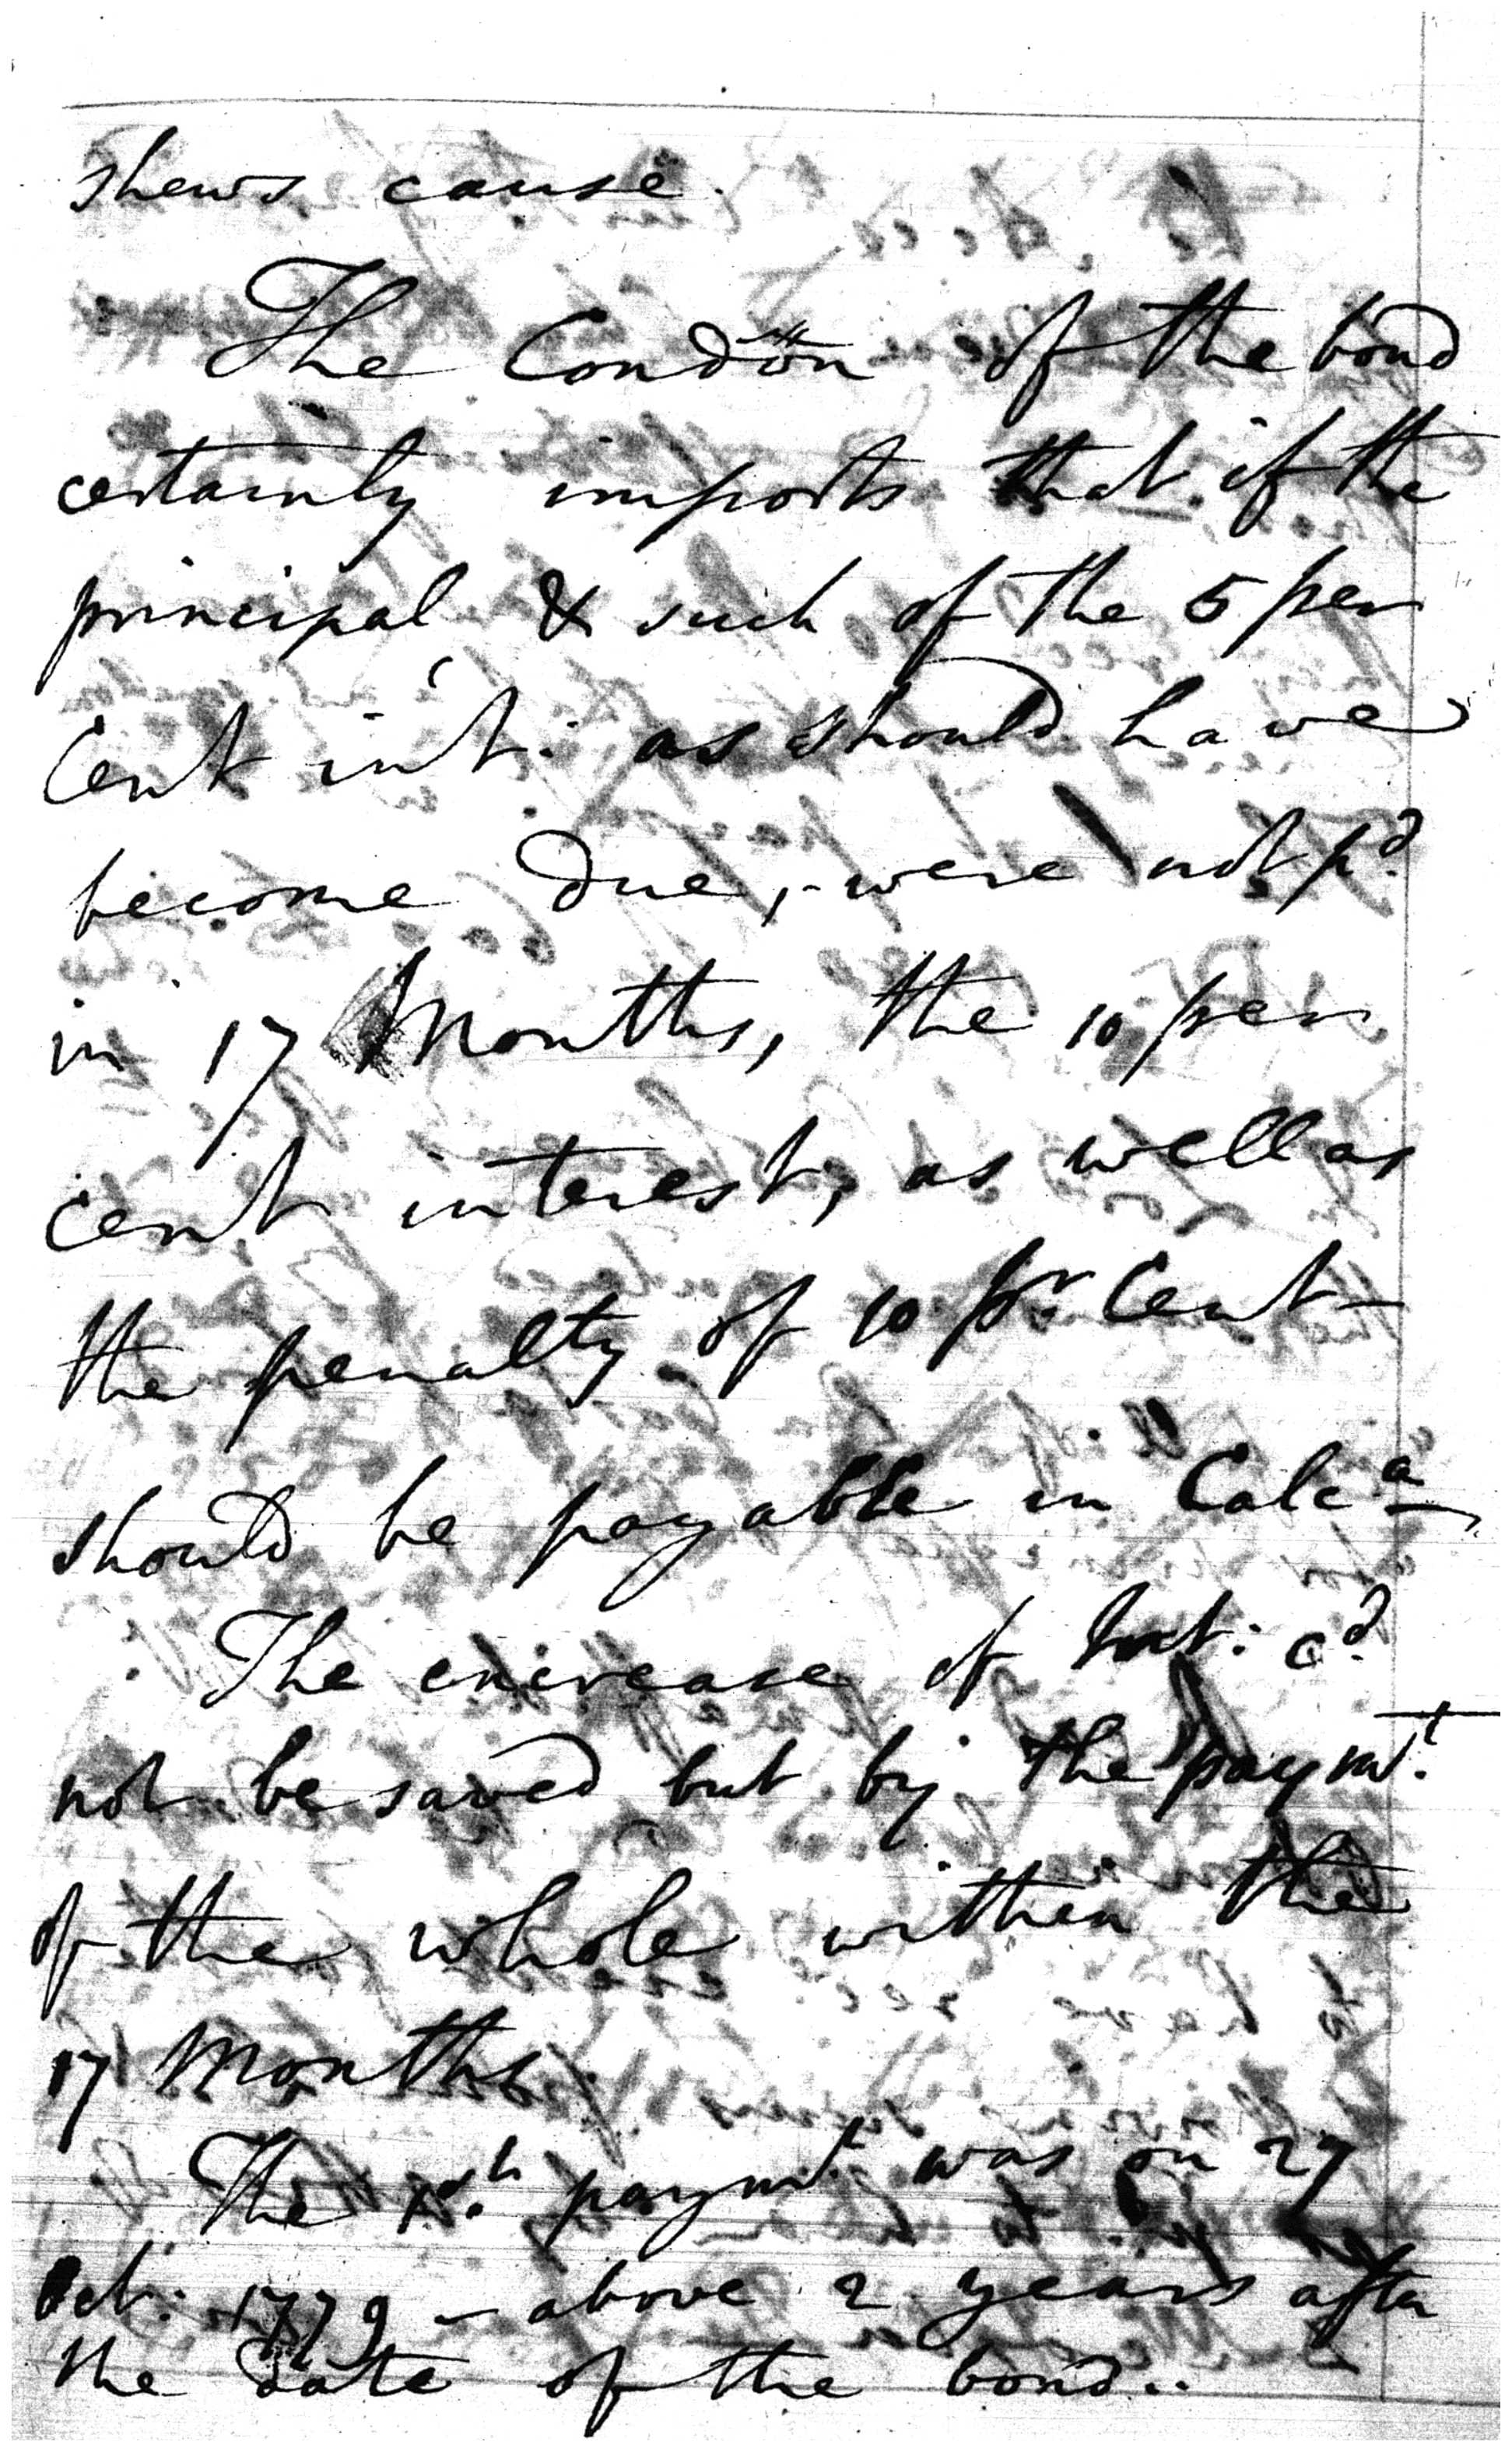 shews cause.
The Condön of the bond
certainly imports that if the
principal & such of the 5 per
Cent int. as should have
become due, - were not pd.
in 17 Months, the 10 per
cent interest, as well as
the penalty of 10 pr. Cent -
should be payable in Calca
The encrease of Int: cd.
not be saved but by the paymt.
of the whole within the
17 Months
The paymt was on 27
Oct: 1779 - above 2 years after
the date of the bond..